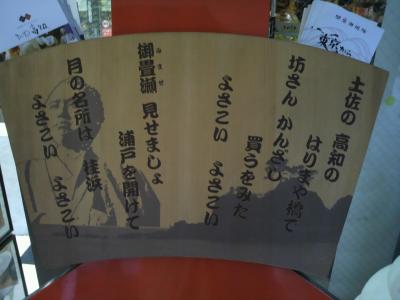 土佐の 高知の
はりまや橋で
坊さん かんざし
買うをみた
よさこい よさこい
御畳瀬 見せましょ
みませ
浦戸を開けて
月の名所は 桂浜
よさこい よさこい